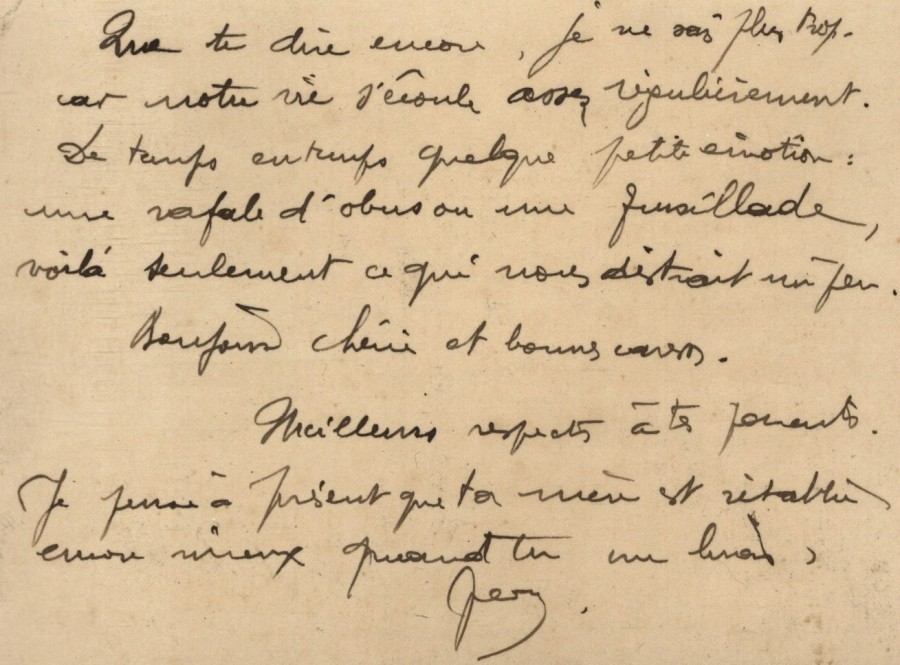 Que te dire encore, je ne sais plus trop.
car notre vie s'écoule assez régulièrement.
De temps en temps quelque petite émotion :
une rafale d'obus ou une fusillade,
voilà seulement ce qui nous distrait un peu.
Bonjour chérie et bonnes caresses.
Meilleurs respects à tes parents.
Je pense à présent que ta mère est rétablie
encore mieux quand tu me liras,